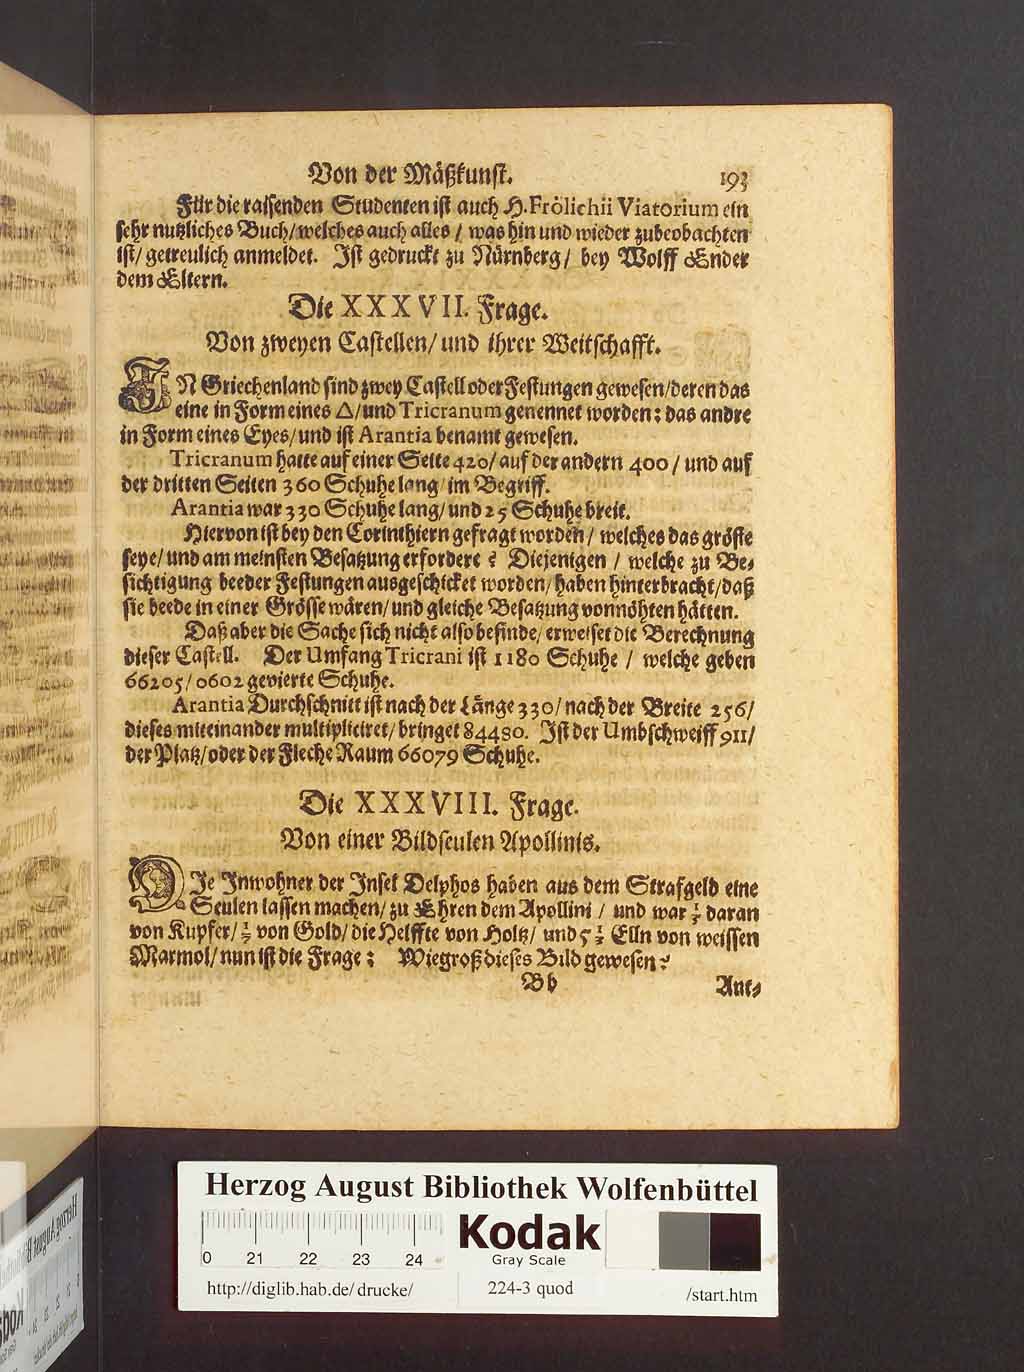 Von der Mäßkunst. 193
Für die raisenden Studenten ist auch H. Frölichii Viatorium ein
sehr nutzliches Buch/ welches auch alles / was hin und wieder zubeobachten
ist/ getreulich anmeldet. Ist gedruckt zu Nürnberg/ bey Wolff Ender
dem Eltern.
Die XXXVII. Frage.
Von zweyen Castellen/ und ihrer Weitschafft.
IN Griechenland sind zwey Castell oder Festungen gewesen/ deren das
eine in Form eines △/ und Tricranum genennet worden: das andre
in Form eines Eyes/ und ist Arantia benamt gewesen.
Tricranum hatte auf einer Seite 420/ auf der andern 400/ und auf
der dritten Seiten 360 Schuhe lang im Begriff.
Arantia war 330 Schuhe lang/ und 25 Schuhe breit.
Hiervon ist bey den Corinthiern gefragt worden/ welches das gröste
seye/ und am meinsten Besatzung erfordere? Diejenigen / welche zu Be-
sichtigung beeder Festungen ausgeschicket worden/ haben hinterbracht/ daß
sie beede in einer Grösse wären/ und gleiche Besatzung vonnöhten hätten.
Daß aber die Sache sich nicht also befinde/ erweiset die Berechnung
dieser Castell. Der Umfang Tricrani ist 1180 Schuhe / welche geben
66205/0602 gevierte Schuhe.
Arantia Durchschnitt ist nach der Länge 330/ nach der Breite 256/
dieses miteinander multipliciret/ bringet 84480. Ist der Umbschweiff 911/
der Platz/ oder der Fleche Raum 66079 Schuhe.
Die XXXVIII. Frage.
Von einer Bildseulen Apollinis.
DIe Inwohner der Insel Delphos haben aus dem Strafgeld eine
Seulen lassen machen/ zu Ehren dem Apollini / und war daran
von Kupfer/ von Gold/ die Helffte von Holtz/ und 5 Elln von weissen
Marmol/ nun ist die Frage: Wie groß dieses Bild gewesen?
Bb Ant-
Herzog August Bibliothek Wolfenbüttel
0 21 22 23 24
Kodak
Gray Scale
http://diglib.hab.de/drucke/ 224-3 quod /start.htm